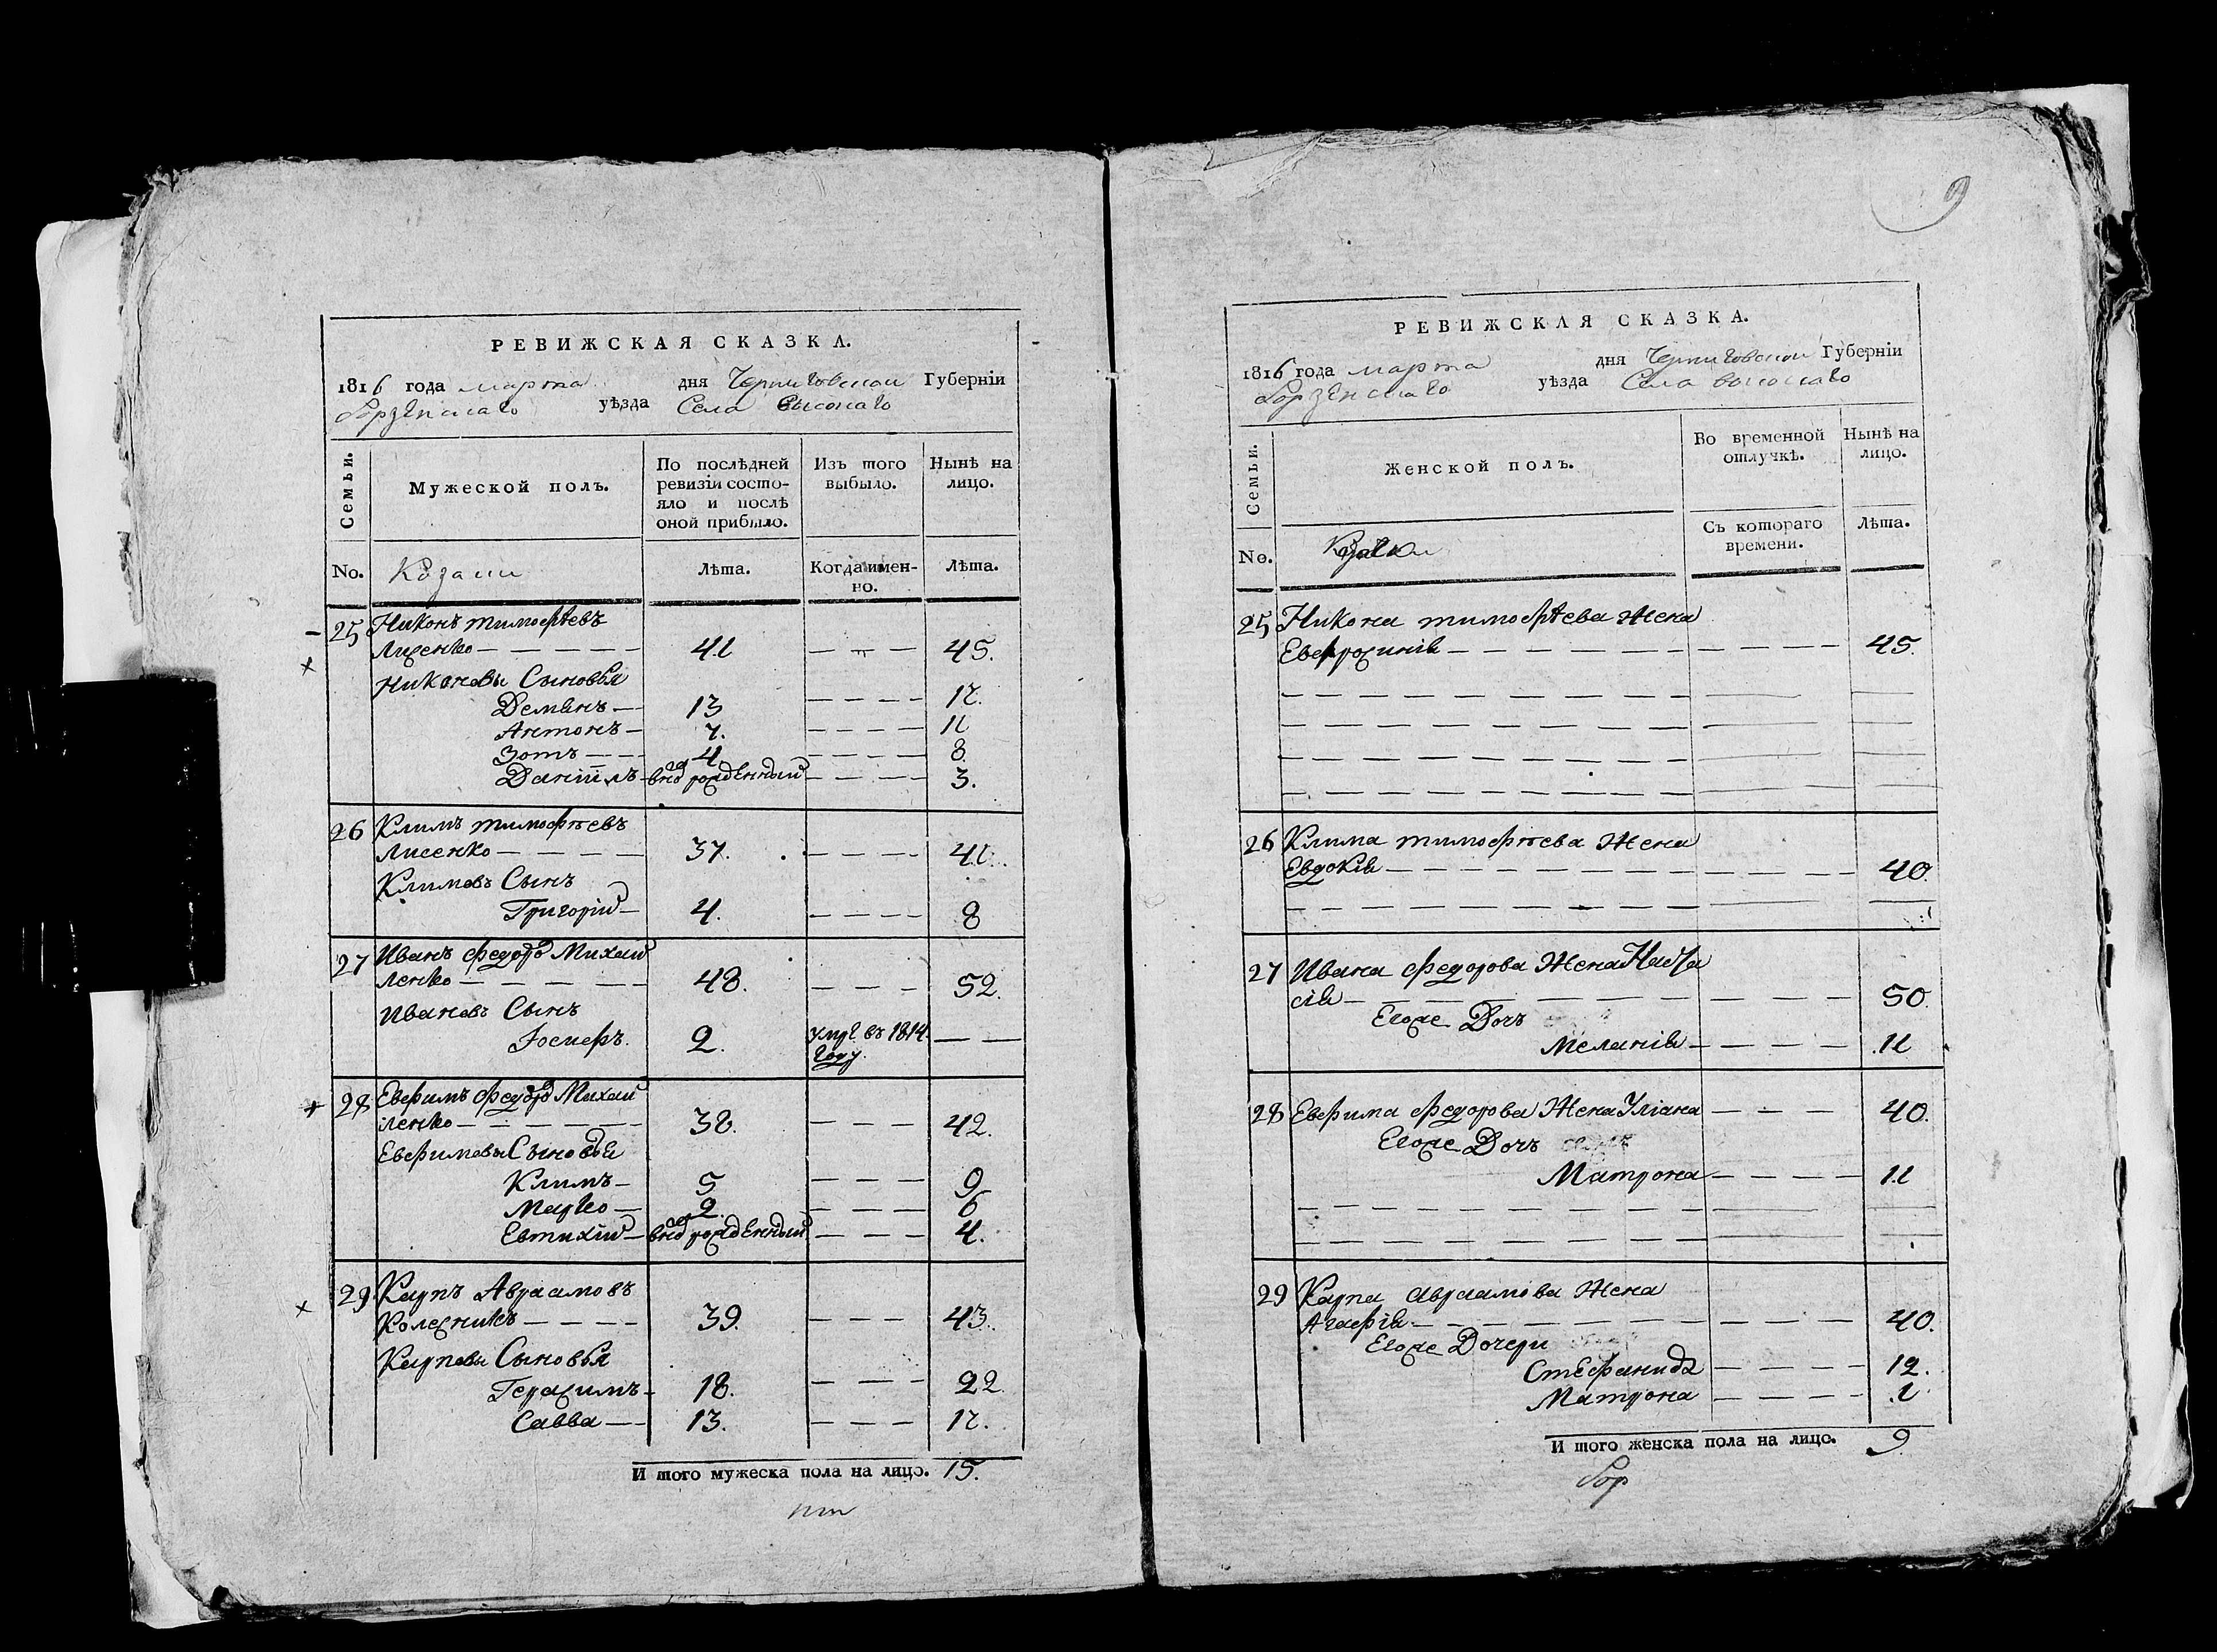 РЕВИЖСКАЯ СКАЗКА.
1816 года марта дня Черниговской Губерніи
Борзенскаго уѣзда Села Высокаго
Семьи.
Мужеской полъ.
По послѣдней ревизіи состо-
яло и послѣ оной прибыло.
Изъ того выбыло.
Нынѣ на лицо.
No. Козаки Лѣта. Когда имен-
но. Лѣта.
25 Никонъ тимофѣевъ
Лисенко — 41 — 45.
Никоновы Сыновья
Демянъ — 13 — 17.
Антонъ — 7. — 11
Зотъ — 4 — 8
Даніилъ — новорожденный — 3.
26 Климъ тимофѣевъ
Лисенко — 37. — 41.
Климовъ Сынъ
Григорій — 4. — 8
27 Иванъ федоровъ Михай
ленко — 48. — 52.
Ивановъ Сынъ
Іосифъ. 2. умре въ 1814.
году. —
28 Евфимъ федоровъ Михай
ленко — 38. — 42.
Евфимовы Сыновья
Климъ — 5 — 9
Марко — 2. — 6
Евтихій — новорожденный — 4.
29 Карпъ Авраамовъ
Колесникъ — 39. — 43.
Карповы Сыновья
Герасимъ — 18. — 22.
Савва — 13. — 17.
И того мужеска пола на лицо. 15.
9
РЕВИЖСКАЯ СКАЗКА.
1816 года марта дня Черниговской Губерніи
Борзенскаго уѣзда Села высокаго
Семьи.
Женской полъ.
Во временной отлучкѣ.
Нынѣ на лицо.
No. Съ котораго времени. Лѣта.
25 Никона тимофѣева Жена
Евфросинія — 45.
26 Клима тимофѣева Жена
Евдокія — 40.
27 Ивана федорова Жена Наста
сія — 50.
Егоже Дочь
Меланія — 11
28 Евфима федорова Жена Уліана — 40.
Егоже Дочь
Матрона — 11
29 Карпа авраамова Жена
Агафія — 40.
Егоже Дочери
Стефанида — 12.
Матрона — 1
И того женска пола на лицо. 9.
Бор